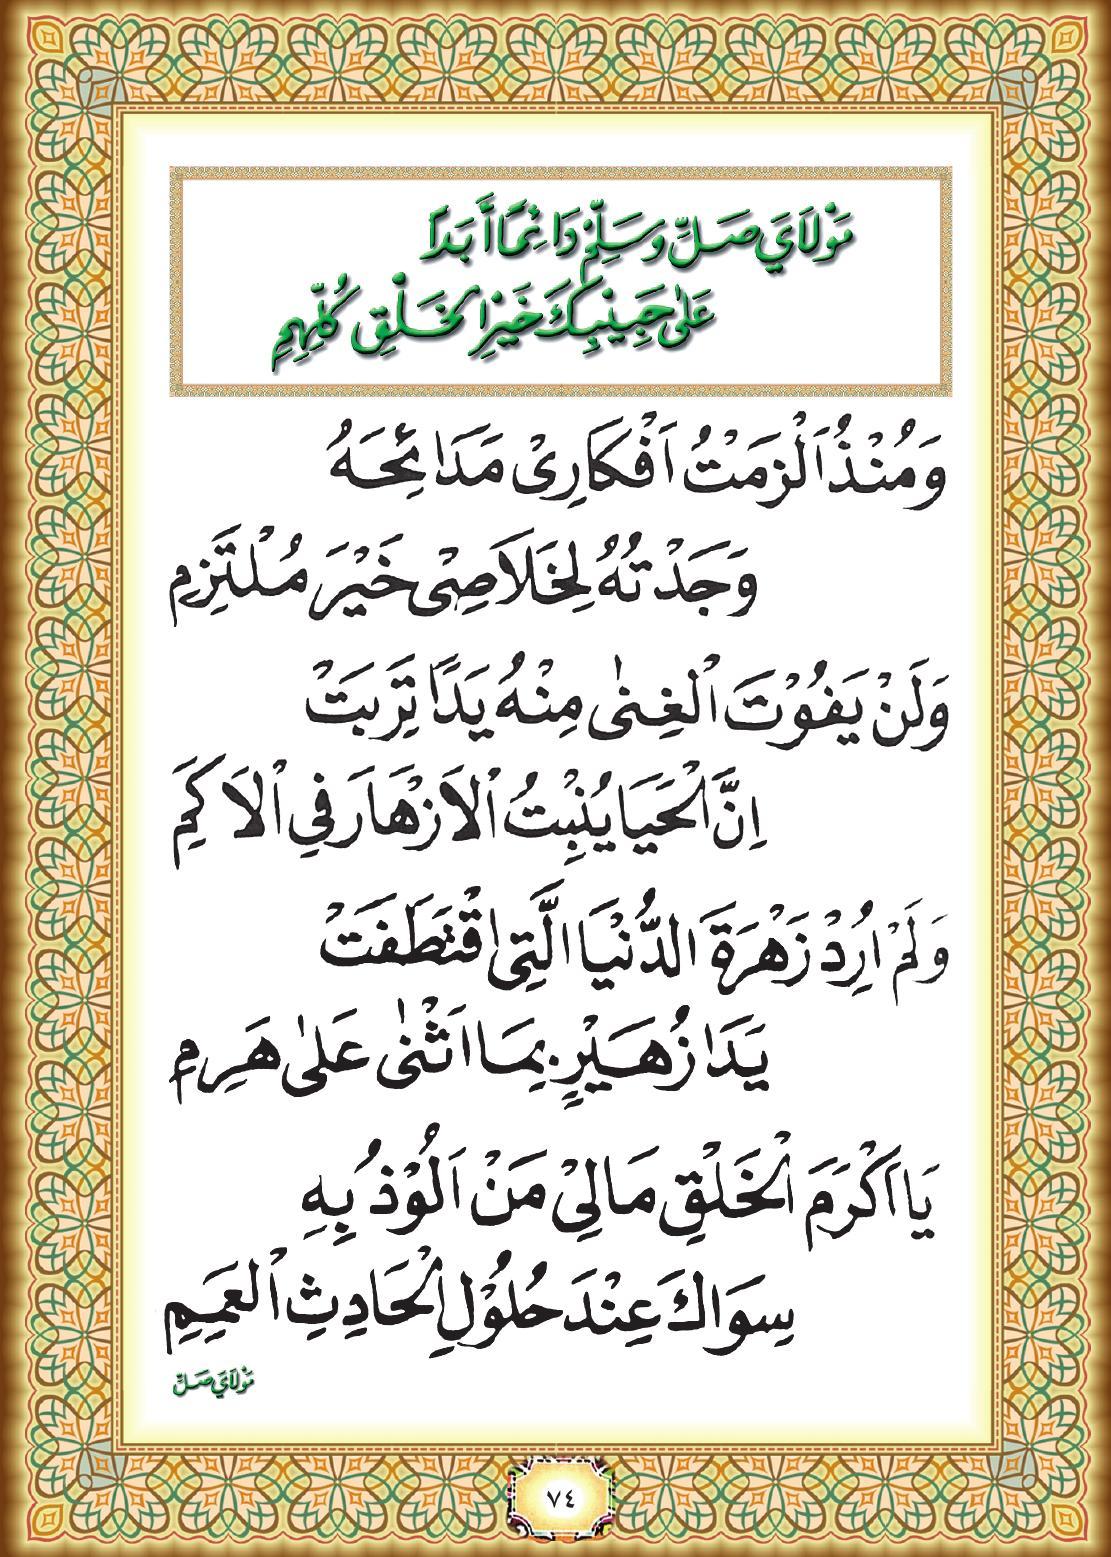 مَوْلَايَ صَلِّ وَسَلِّمْ دَائِمًا أَبَدًا
عَلَى حَبِيْبِكَ خَيْرِ الْخَلْقِ كُلِّهِمِ
وَمُنْذُ اَلْزَمْتُ اَفْكَارِىْ مَدَائِحَهُ
وَجَدْتُهُ لِخَلَاصِىْ خَيْرَ مُلْتَزِمِ
وَلَنْ يَفُوْتَ الْغِنٰى مِنْهُ يَدًا تَرِبَتْ
اِنَّ الْحَيَا يُنْبِتُ الْاَزْهَارَ فِي الْاَكَمِ
وَلَمْ اُرِدْ زَهْرَةَ الدُّنْيَا الَّتِى اقْتَطَفَتْ
يَدَا زُهَيْرٍ بِمَا اَثْنٰى عَلٰى هَرِمِ
يَا اَكْرَمَ الْخَلْقِ مَالِىْ مَنْ اَلُوْذُ بِهِ
سِوَاكَ عِنْدَ حُلُوْلِ الْحَادِثِ الْعَمِمِ
مَوْلَايَ صَلِّ
٧٤